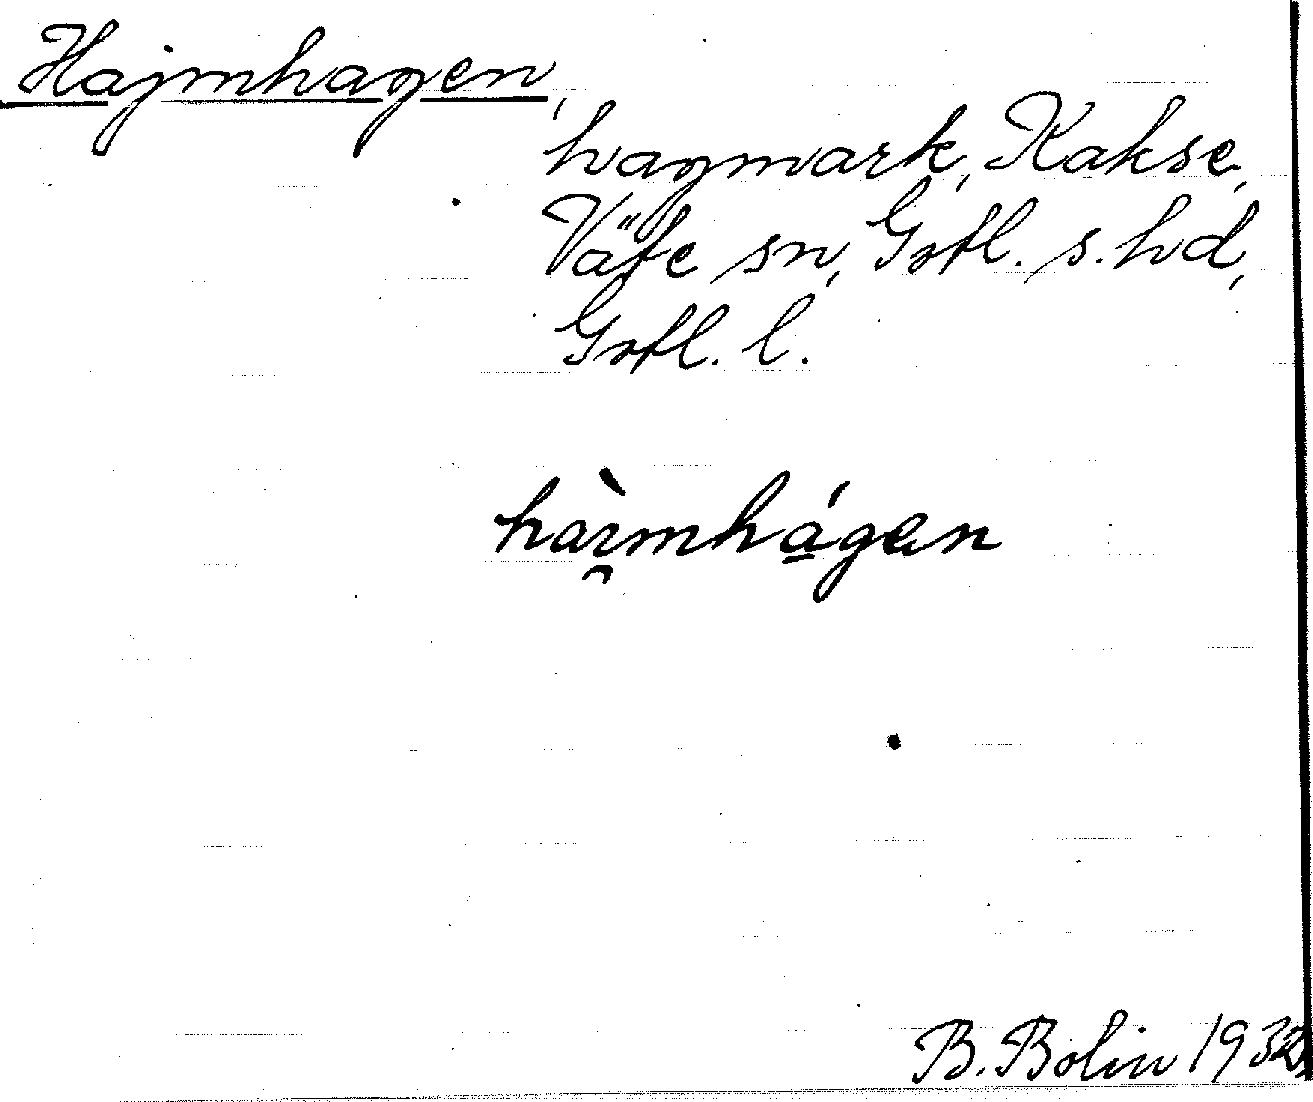 Hajmhagen,
hagmark, Kakse,
Väte sn, Gotl. s. hd,
Gotl. l.
hàı̯mhágan
B. Bolin 1932